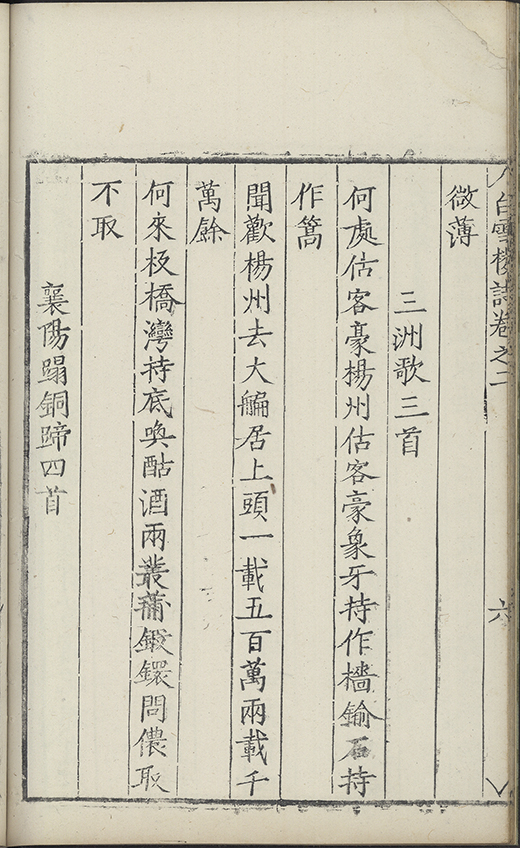 白雲樓詩卷之二
六
微薄
三洲歌三首
何處估客豪楊州估客豪象牙持作檣鍮石持
作篙
聞歡楊州去大艑居上頭一載五百萬兩載千
萬餘
何來板橋灣持底喚酤酒兩叢蒲鍛鐶問儂取
不取
襄陽蹋銅蹄四首